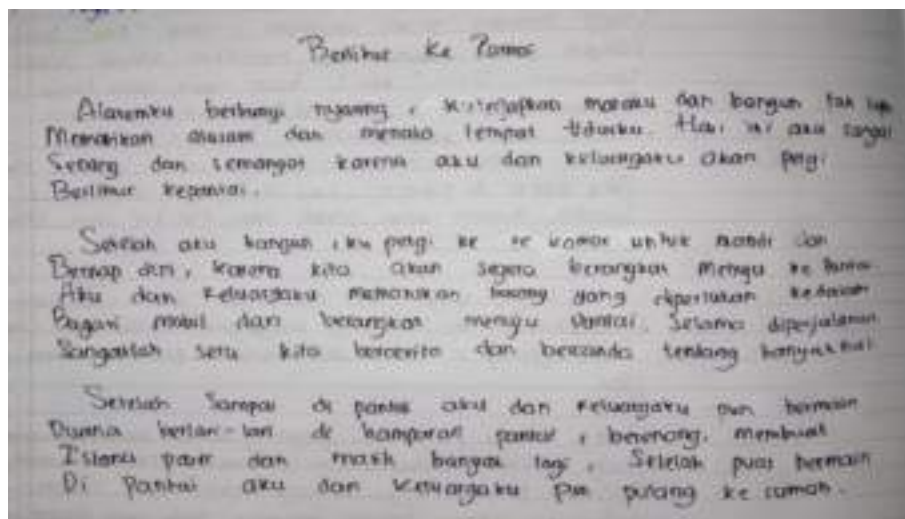 Berlibur Ke Pantai
Alaramku berbunyi nyaring, Kukerjapkan mataku dan bangun tak lupa
Mematikan alaram dan menata tempat tidurku. Hari ini aku sangat
Senang dan semangat karena aku dan keluargaku akan pergi
Berlibur kepantai.
Setelah aku bangun aku pergi ke ke kamar untuk mandi dan
Bersiap diri, karena kita akan segera berangkat menuju ke Pantai
Aku dan Keluargaku memasukkan barang yang diperlukan kedalam
Bagasi mobil dan berangkat menuju pantai. Selama diperjalanan
Sangatlah seru kita bercerita dan bercanda tentang banyak hal
Setelah Sampai di pantai aku dan keluargaku pun bermain
Disana berlari-lari di hamparan pantai, berenang, membuat
Istana pasir dan masih banyak lagi, Setelah puas bermain
Di Pantai aku dan Keluargaku pun pulang ke rumah.